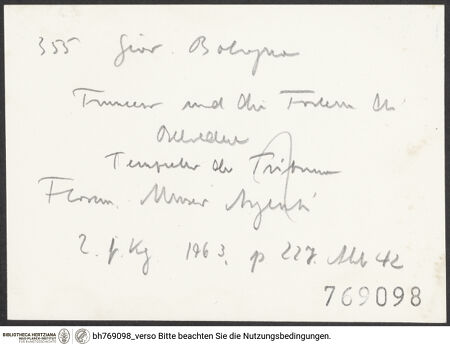 355 Giov. Bologna
Francesco und die
Tempietto der Tribuna
Floren. Museo Argenti
Z. f. Kg. 1963, p 227. Abb 42
769098
BIBLIOTHECA HERTZIANA
MAX-PLANCK-INSTITUT
FÜR KUNSTGESCHICHTE
bh769098_verso Bitte beachten Sie die Nutzungsbedingungen.